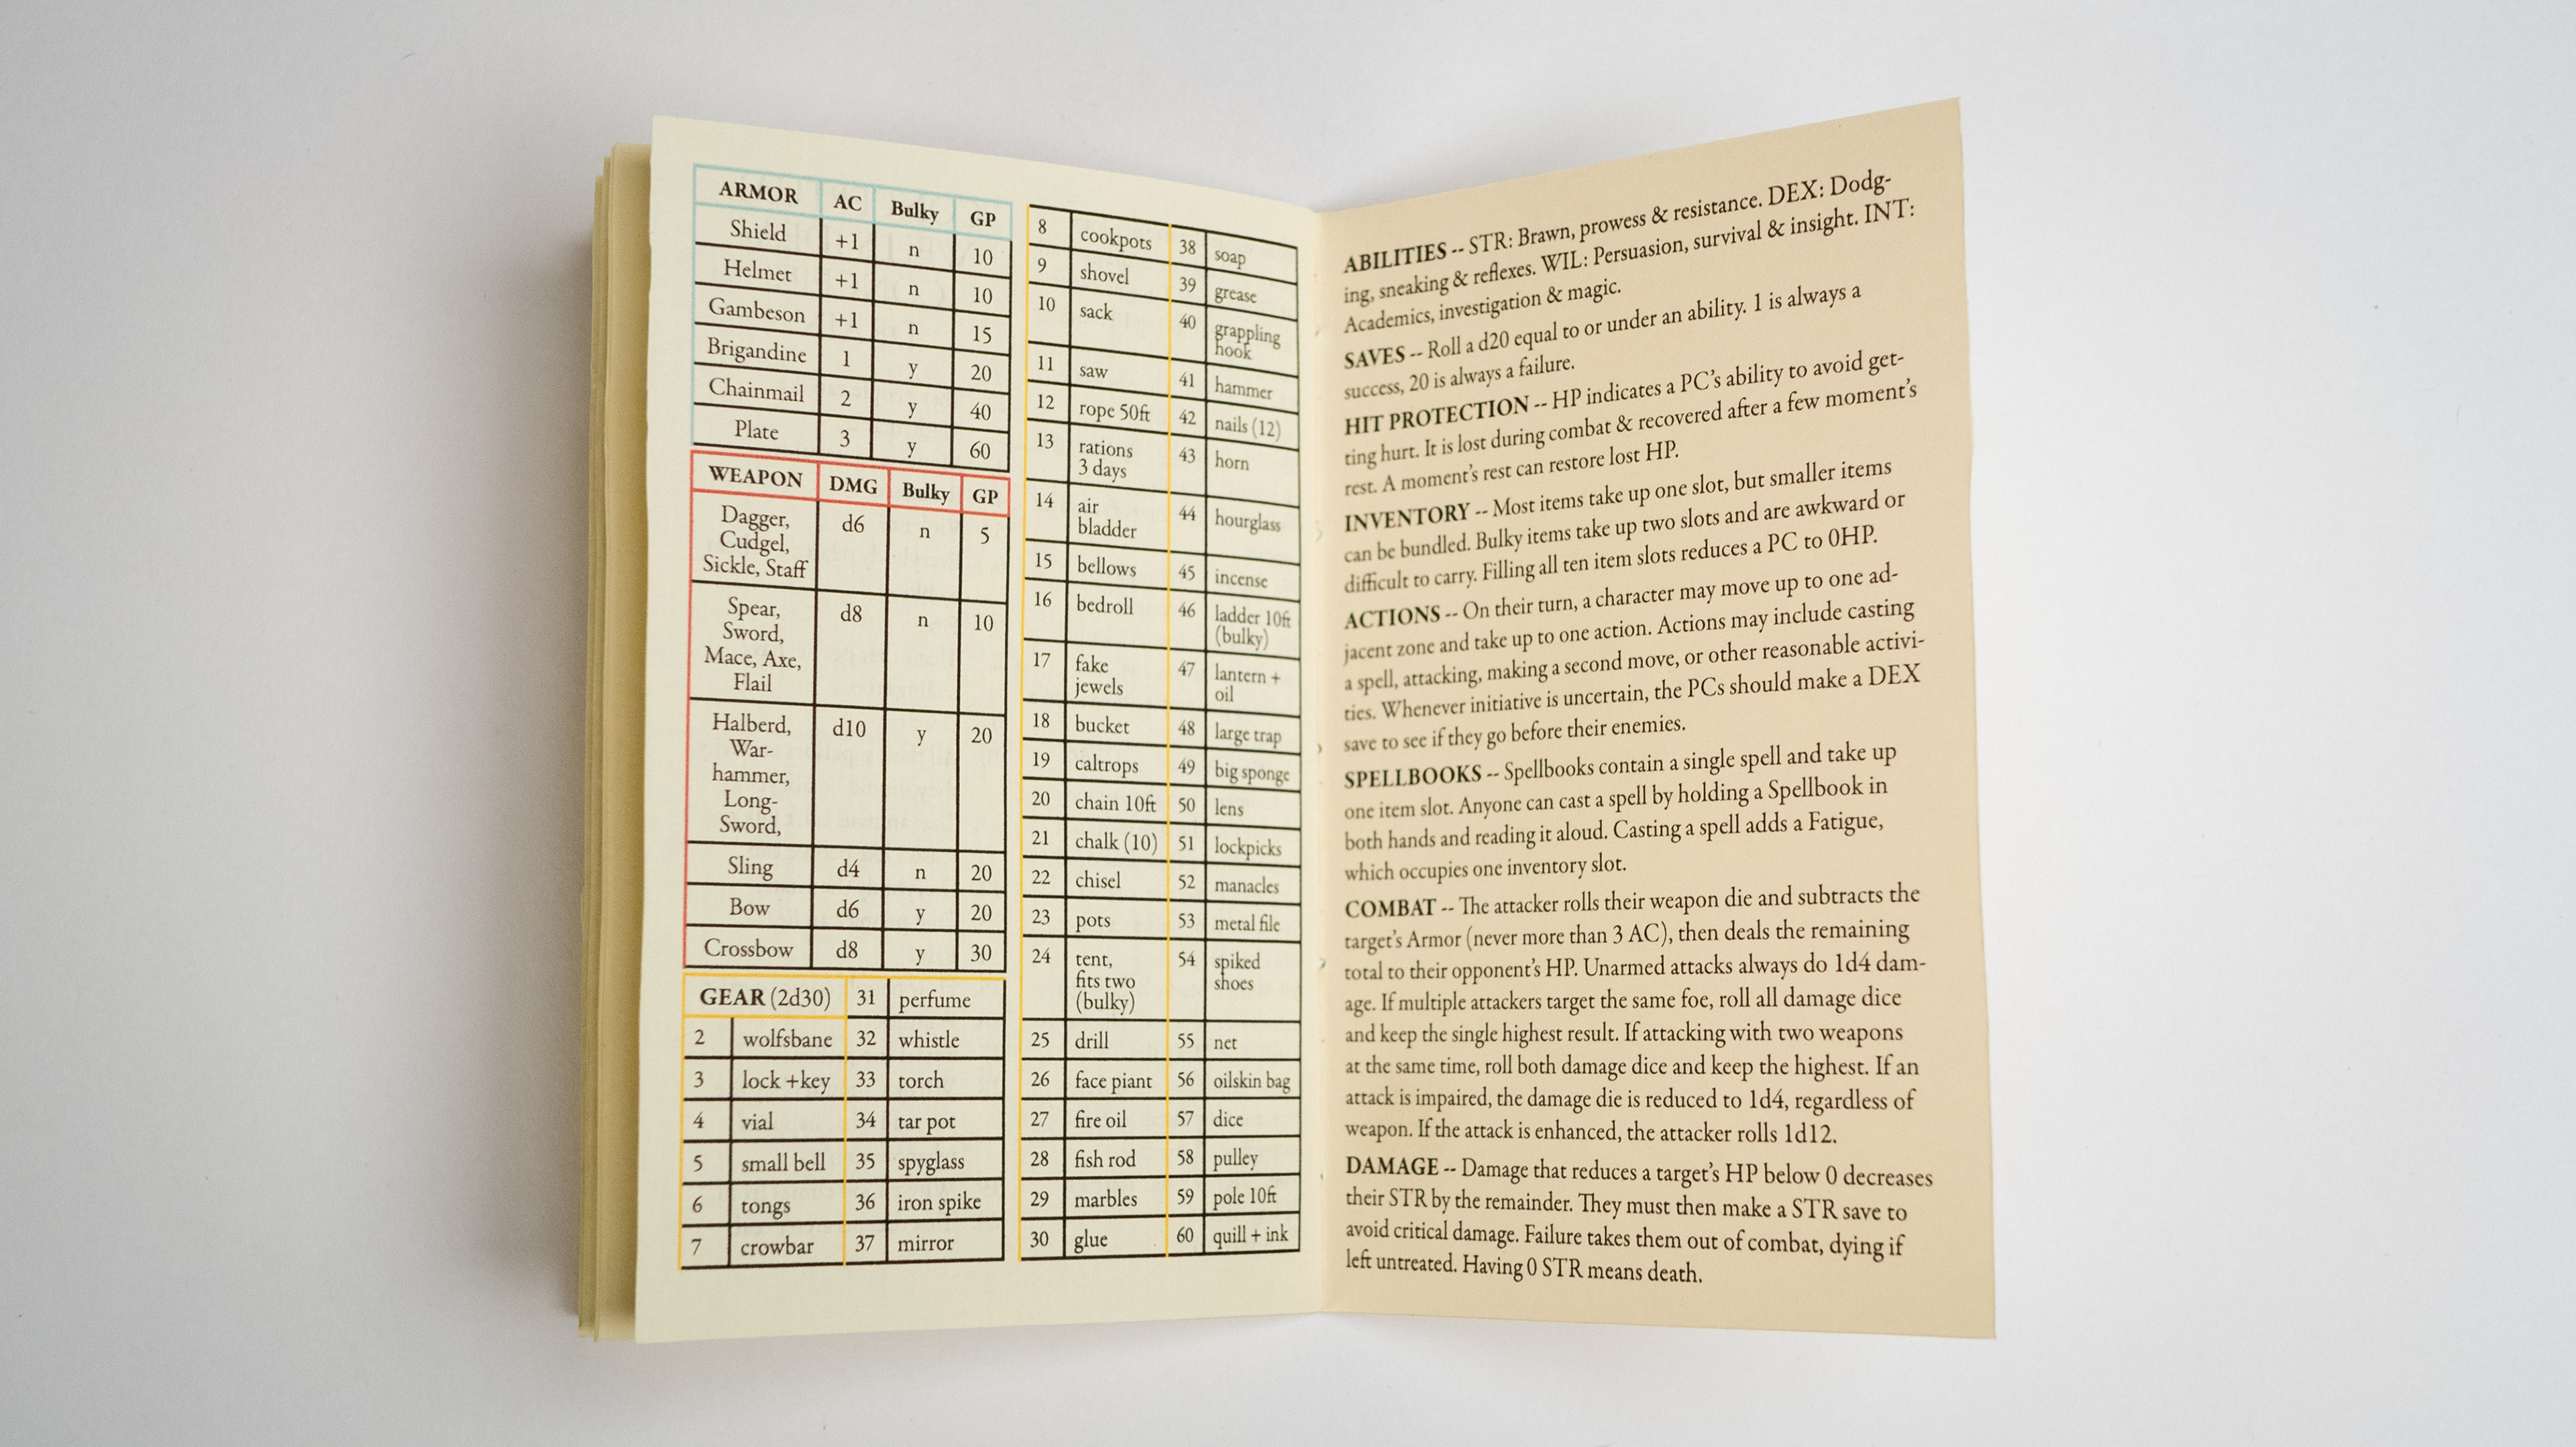 ARMOR AC Bulky GP
Shield +1 n 10
Helmet +1 n 10
Gambeson +1 n 15
Brigandine 1 y 20
Chainmail 2 y 40
Plate 3 y 60
WEAPON DMG Bulky GP
Dagger, d6 n 5
Cudgel,
Sickle, Staff
Spear, d8 n 10
Sword,
Mace, Axe,
Flail
Halberd, d10 y 20
War-
hammer,
Long-
Sword,
Sling d4 n 20
Bow d6 y 20
Crossbow d8 y 30
GEAR (2d30) 31 perfume
2 wolfsbane 32 whistle
3 lock +key 33 torch
4 vial 34 tar pot
5 small bell 35 spyglass
6 tongs 36 iron spike
7 crowbar 37 mirror
8 cookpots 38 soap
9 shovel 39 grease
10 sack 40 grappling
hook
11 saw 41 hammer
12 rope 50ft 42 nails (12)
13 rations 43 horn
3 days
14 air 44 hourglass
bladder
15 bellows 45 incense
16 bedroll 46 ladder 10ft
(bulky)
17 fake 47 lantern +
jewels oil
18 bucket 48 large trap
19 caltrops 49 big sponge
20 chain 10ft 50 lens
21 chalk (10) 51 lockpicks
22 chisel 52 manacles
23 pots 53 metal file
24 tent, 54 spiked
fits two shoes
(bulky)
25 drill 55 net
26 face piant 56 oilskin bag
27 fire oil 57 dice
28 fish rod 58 pulley
29 marbles 59 pole 10ft
30 glue 60 quill + ink
ABILITIES -- STR: Brawn, prowess & resistance. DEX: Dodg-
ing, sneaking & reflexes. WIL: Persuasion, survival & insight. INT:
Academics, investigation & magic.
SAVES -- Roll a d20 equal to or under an ability. 1 is always a
success, 20 is always a failure.
HIT PROTECTION -- HP indicates a PC's ability to avoid get-
ting hurt. It is lost during combat & recovered after a few moment's
rest. A moment's rest can restore lost HP.
INVENTORY -- Most items take up one slot, but smaller items
can be bundled. Bulky items take up two slots and are awkward or
difficult to carry. Filling all ten item slots reduces a PC to 0HP.
ACTIONS -- On their turn, a character may move up to one ad-
jacent zone and take up to one action. Actions may include casting
a spell, attacking, making a second move, or other reasonable activi-
ties. Whenever initiative is uncertain, the PCs should make a DEX
save to see if they go before their enemies.
SPELLBOOKS -- Spellbooks contain a single spell and take up
one item slot. Anyone can cast a spell by holding a Spellbook in
both hands and reading it aloud. Casting a spell adds a Fatigue,
which occupies one inventory slot.
COMBAT -- The attacker rolls their weapon die and subtracts the
target's Armor (never more than 3 AC), then deals the remaining
total to their opponent's HP. Unarmed attacks always do 1d4 dam-
age. If multiple attackers target the same foe, roll all damage dice
and keep the single highest result. If attacking with two weapons
at the same time, roll both damage dice and keep the highest. If an
attack is impaired, the damage die is reduced to 1d4, regardless of
weapon. If the attack is enhanced, the attacker rolls 1d12.
DAMAGE -- Damage that reduces a target's HP below 0 decreases
their STR by the remainder. They must then make a STR save to
avoid critical damage. Failure takes them out of combat, dying if
left untreated. Having 0 STR means death.